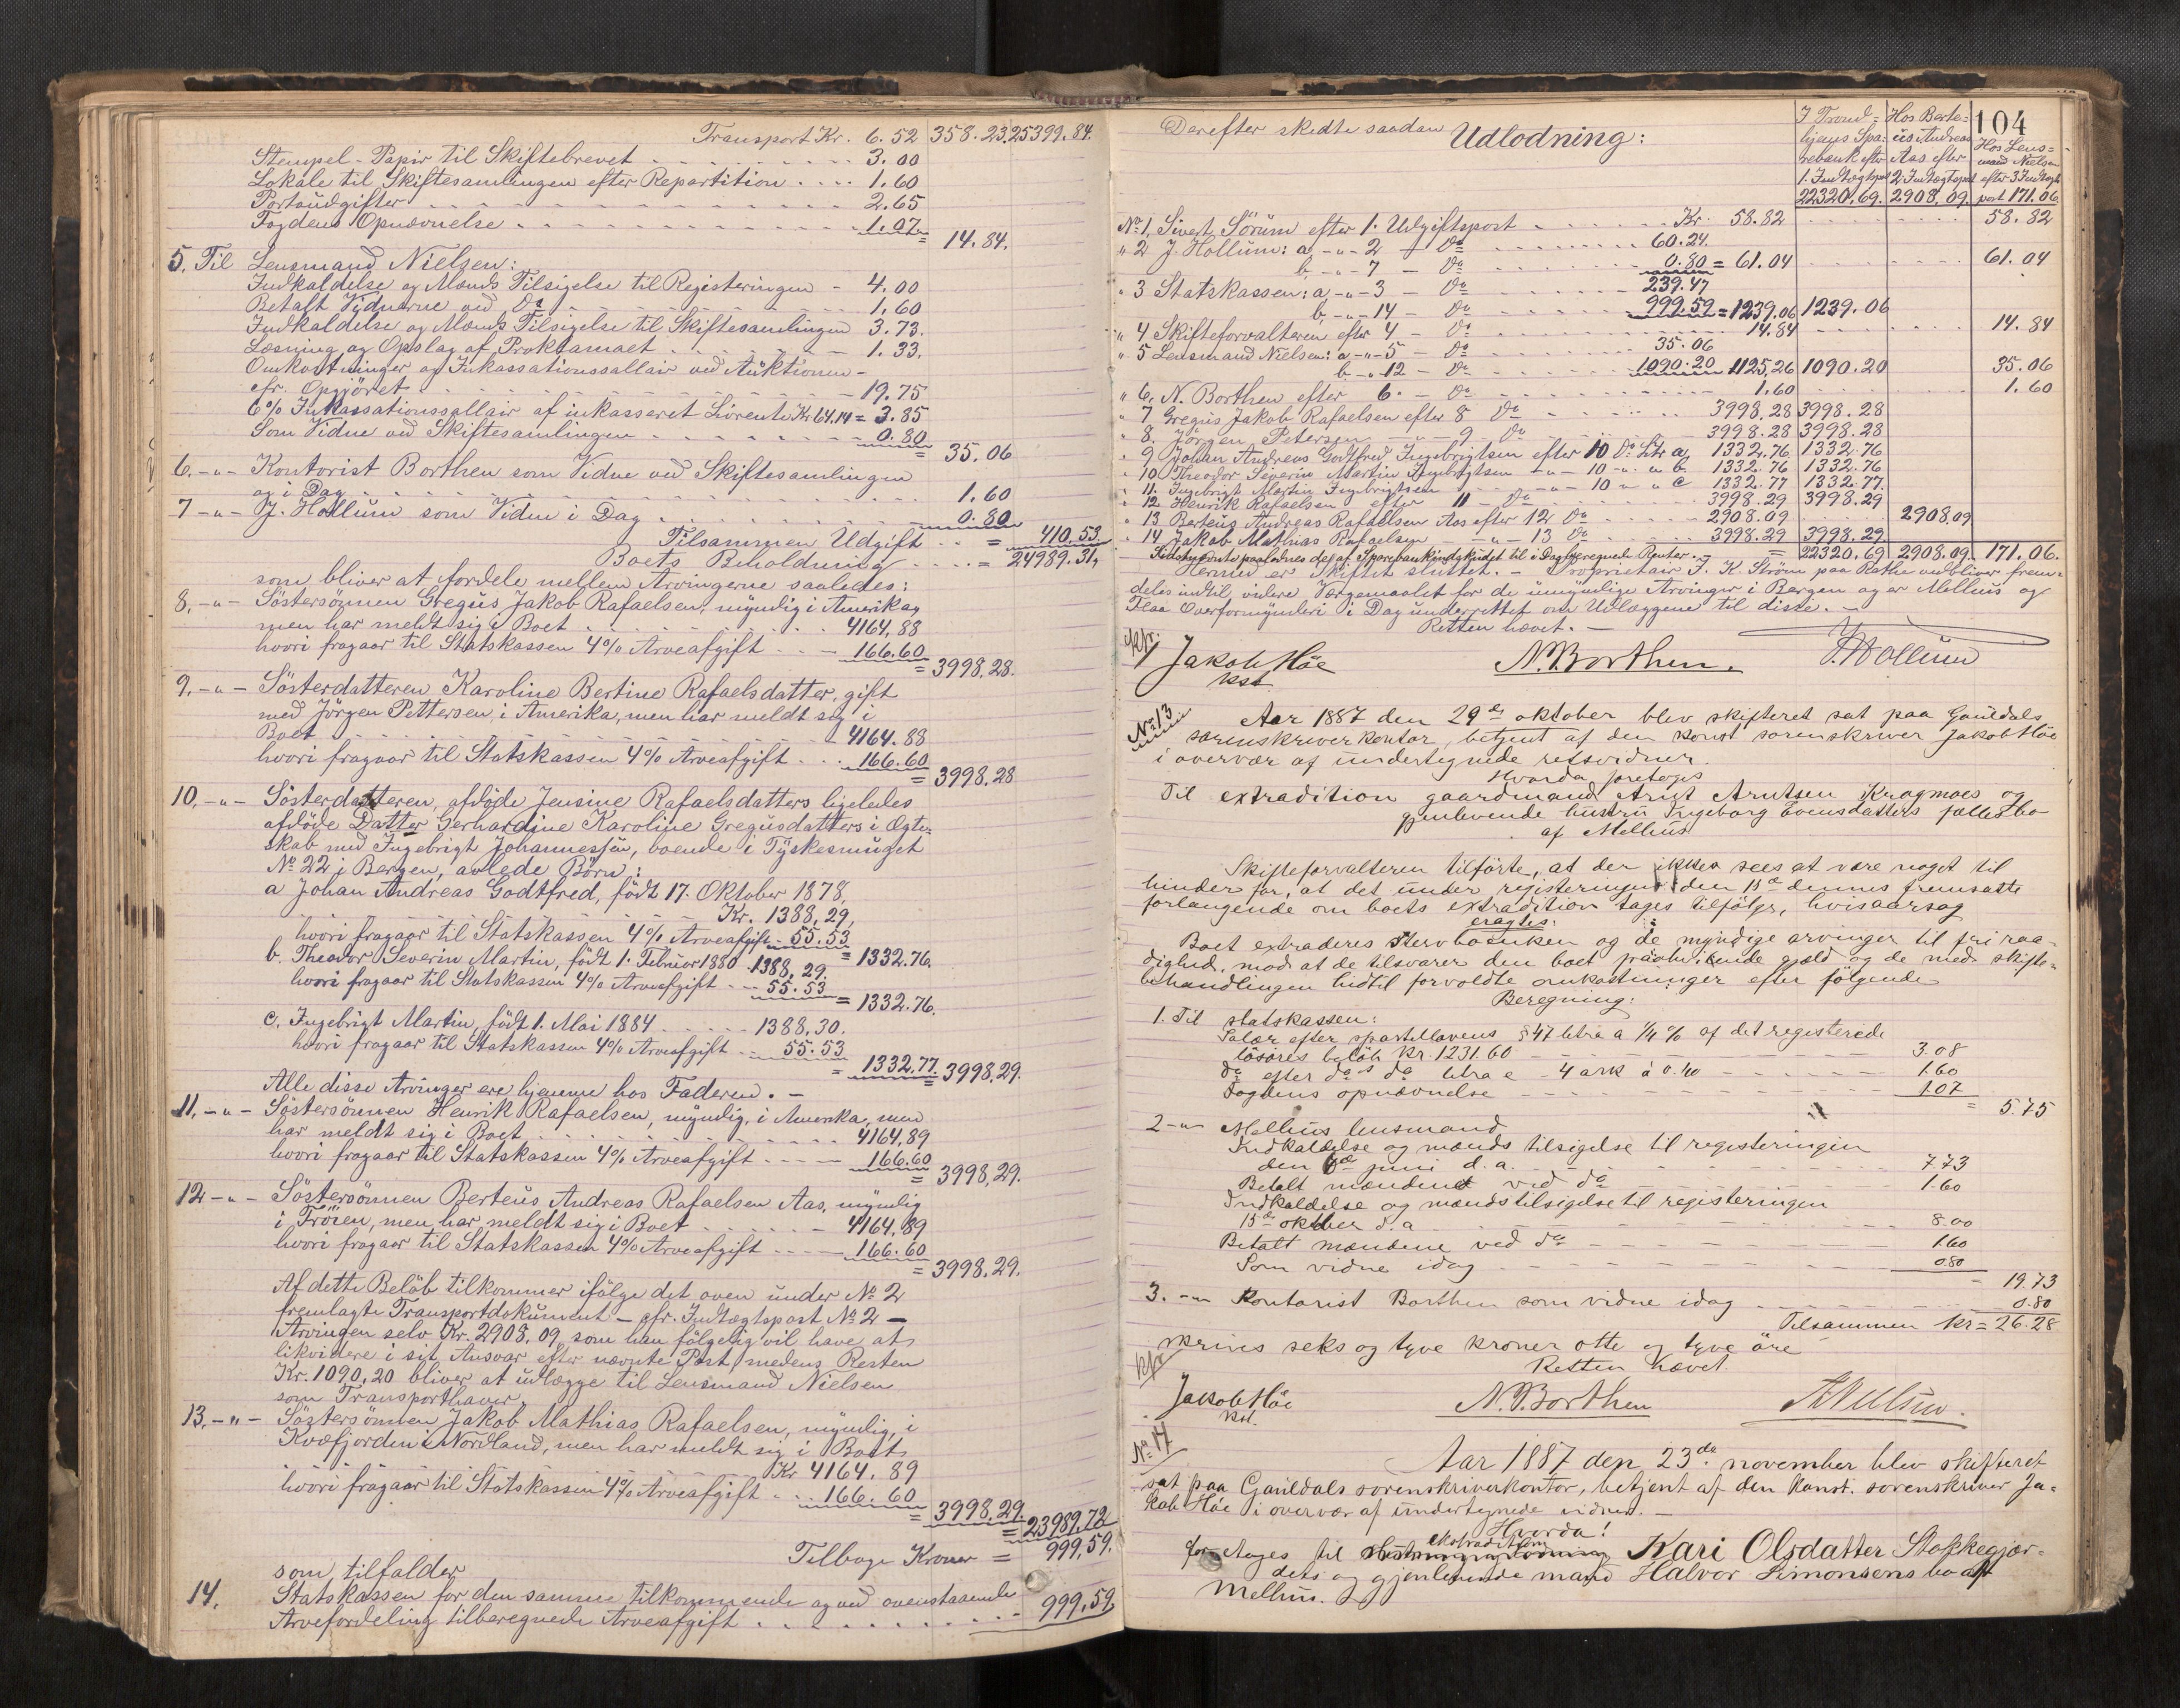 Transport Kr. 6.52 358.23. 25399.84.
Stempel-Papir til Skiftebrevet 3.00
Lokale til Skiftesamlingen efter Repartition 1.60
Portoudgifter 2.65
Fogdens Opnævnelse 1.07 = 14.84.
5. Til Lensmand Nielsen:
Indkaldelse og Mænds Tilsigelse til Registeringen 4.00
Betalt Vidnerne ved Do 1.60
Indkaldelse og Mænds Tilsigelse til Skiftesamlingen 3.73.
Læsning og Opslag af Proklamaet 1.33.
Omkostninger og Inkassationssallair ved Auktionen -
cfr. Opgjöret 19.75
6% Inkassationssallair af inkasseret Kr 64.14 = 3.85
Som Vidne ved Skiftesamlingen 0.80 = 35.06
6. -"- Kontorist Borthen som Vidne ved Skiftesamlingen
og i Dag 1.60
7 -"- J. Hollum som Vidne i Dag 0.80
Tilsammen Udgift = 410.53.
Boets Beholdning = 24989.31,
som bliver at fordele mellem Arvingerne saaledes:
8. -"- Söstersönnen Gregus Jakob Rafaelsen, myndig i Amerika,
men har meldt sig i Boet 4164.88
hvori fragaar til Statskassen 4% Arveafgift 166.60 = 3998.28.
9. -"- Sösterdatteren Karoline Bertine Rafaelsdatter, gift
med Jörgen Pettersen, i Amerika, men har meldt sig i
Boet 4164.88
hvori fragaar til Statskassen 4% Arveafgift 166.60 = 3998.28
10. -"- Sösterdatteren, afdöde Jensine Rafaelsdatters ligeledes
afdöde Datter Gerhardine Karoline Gregusdatters i Ægte-
skab med Ingebrigt Johannessen, boende i Tyskesmuget
No 22 i Bergen, avlede Börn:
a Johan Andreas Godtfred, födt 17. Oktober 1878,
Kr. 1388.29.
hvori fragaar til Statskassen 4% Arveafgift 55.53 = 1332.76.
b. Theodor Severin Martin, födt 1. Februar 1880 1388.29.
hvori fragaar til Statskassen 4% Arveafgift 55.53 = 1332.76.
c. Ingebrigt Martin, födt 1. Mai 1884 1388.30.
hvori fragaar til Statskassen 4% Arveafgift 55.53 = 1332.77 = 3998.29.
Alle disse Arvinger ere hjemme hos Faderen. -
11. -"- Söstersönnen Henrik Rafaelsen, myndig, i Amerika, men
har meldt sig i Boet 4164.89
hvori fragaar til Statskassen 4% Arveafgift 166.60 = 3998.29.
12 -"- Söstersönnen Berteus Andreas Rafaelsen Aas, myndig
i Fröien, men har meldt sig i Boet 4164.89
hvori fragaar til Statskassen 4% Arveafgift 166.60 = 3998.29.
Af dette Belöb tilkommer ifölge det oven under No 2
fremlagte Transportdokument - cfr. Indtægtspost No 2 -
Arvingen selv Kr. 2908.09, som han fölgelig vil have at
likvidere i sit Ansvar efter nævnte Post, medens Resten
Kr. 1090,20 bliver at udlægge til Lensmand Nielsen
som Transporthaver.
13. -"- Söstersönnen Jakob Mathias Rafaelsen, myndig, i
Kvæfjorden i Nordland, men har meldt sig i Boet
Kr 4164.89
hvori fragaar til Statskassen 4% Arveafgift 166.60 = 3998.29. = 23989.72
Tilbage Kroner = 999.59.
som tilfalder
14. Statskassen for den samme tilkommende og ved ovenstaaende
Arvefordeling tilberegnede Arveafgift 999.59
104
Derefter skedte saadan Udlodning:
I Trond- hjems Spa- rebank efter 1. Indtægtspost 22320.69.
Hos Berte- us Andreas Aas efter 2 Indtægtspost 2908.09
Hos Lens- mand Nielsen efter 3 Indtægts post 171.06.
No 1, Sivert Sörum efter 1. Udgiftspost Kr. 58.82 58.82
" 2 J. Hollum: a, -"- 2 - Do 60.24.
b, -"- 7 - Do 0.80 = 61.04 61.04
" 3 Statskassen: a, -"- 3 - Do 239.47
b, -"- 14 - Do 999.59 = 1239.06 1239.06
" 4 Skifteforvalteren efter 4 - Do 14.84 14.84
" 5 Lensmand Nielsen: a -"- 5 - Do 35.06
b -"- 12 - Do 1090.20 1125,26 1090.20 35.06
" 6, N. Borthen efter 6. - Do 1.60 1.60
" 7 Gregus Jakob Rafaelsen efter 8 Do 3998.28 3998.28
" 8. Jörgen Petersen -"- 9 Do 3998.28 3998.28
" 9 Johan Andreas Godtfred Ingebrigtsen efter 10 Do Ltr a, 1332.76 1332.76
" 10 Theodor Severin Martin Ingebrigtsen -"- 10 -"- " b 1332.76 1332.76
" 11. Ingebrigt Martin Ingebrigtsen -"- 10 " " c 1332.77 1332.77.
" 12 Henrik Rafaelsen efter 11 Do 3998.29 3998.29
" 13 Berteus Andreas Rafaelsen Aas efter 12 Do 2908.09 2908.09
" 14 Jakob Mathias Rafaelsen -"- 13 Do 3998.29 3998.29
de af Sparebankindskudet til i Dag beregnede Renter. - = 22320.69 2908.09 171.06.
Hermed er Skiftet sluttet. - Proprietair J. K. Ström paa Rathe anbliver frem-
deles indtil videre Værgemaalet for de umyndige Arvinger i Bergen og er Melhus og
Flaa Overformynderi i Dag underrettet om Udlæggene til disse. -
Retten hævet. -
Jakob Höe
kst.
N. Borthen.
J. Hollum
No 13
Aar 1887 den 29de oktober blev skifteret sat paa Gauldals
sorenskriverkontor, betjent af den konst sorenskriver Jakob Höe
i overvær af undertegnede retsvidner.
Hvorda foretoges
Til extradition gaardmand Arnt Arntsen Kragmoes og
gjenlevende hustru Ingeborg Evensdatters fællesbo
af Melhus
Skifteforvalteren tilförte, at der ikke sees at være noget til
hinder for, at det under registeringen den 13de dennes fremsatte
forlangende om boets extradition tages tilfölge, hvisaarsag
eragtes:
Boet extraderes Stervboenken og de myndige arvinger til fri raa-
dighed, mod at de tilsvarer den boet paahvilende gjæld og de med skifte-
behandlingen hidtil forvoldte omkostninger efter fölgende
Beregning:
1. Til statskassen:
Salær efter sportellovens § 47 litra a 1/4 % af det registerede
lösöres belöb kr. 1231.60 3.08
do efter dos do litra e 4 ark à 0.40 1.60
Fogdens opnævnelse 1.07 = 5.75
2 -"- Melhus lensmand
Indkaldelse og mænds tilsigelse til registeringen
den 6te juni d. a. 7.73
Betalt mændene ved do 1.60
Indkaldelse og mænds tilsigelse til registeringen
13de oktber d. a 8.00
Betalt mændene ved do 1.60
Som vidne idag 0.80 19.73
3. -"- Kontorist Borthen som vidne idag 0.80
Tilsammen kr = 26.28
skrives seks og tyve kroner otte og tyve öre
Retten hævet.
Jakob Höe
kst.
N. Borthen
Nielsen.
No 14
Aar 1887 den 23de november blev skifteret
sat paa Gauldals sorenskriverkontor, betjent af den konst. sorenskriver Ja-
kob Höe i overvær af undertegnede vidner. -
Hvorda!
foretages til ekstradition Kari Olsdatter Stokkegjær-
dets og gjenlevende mand Halvor Simonsens bo af
Melhus.